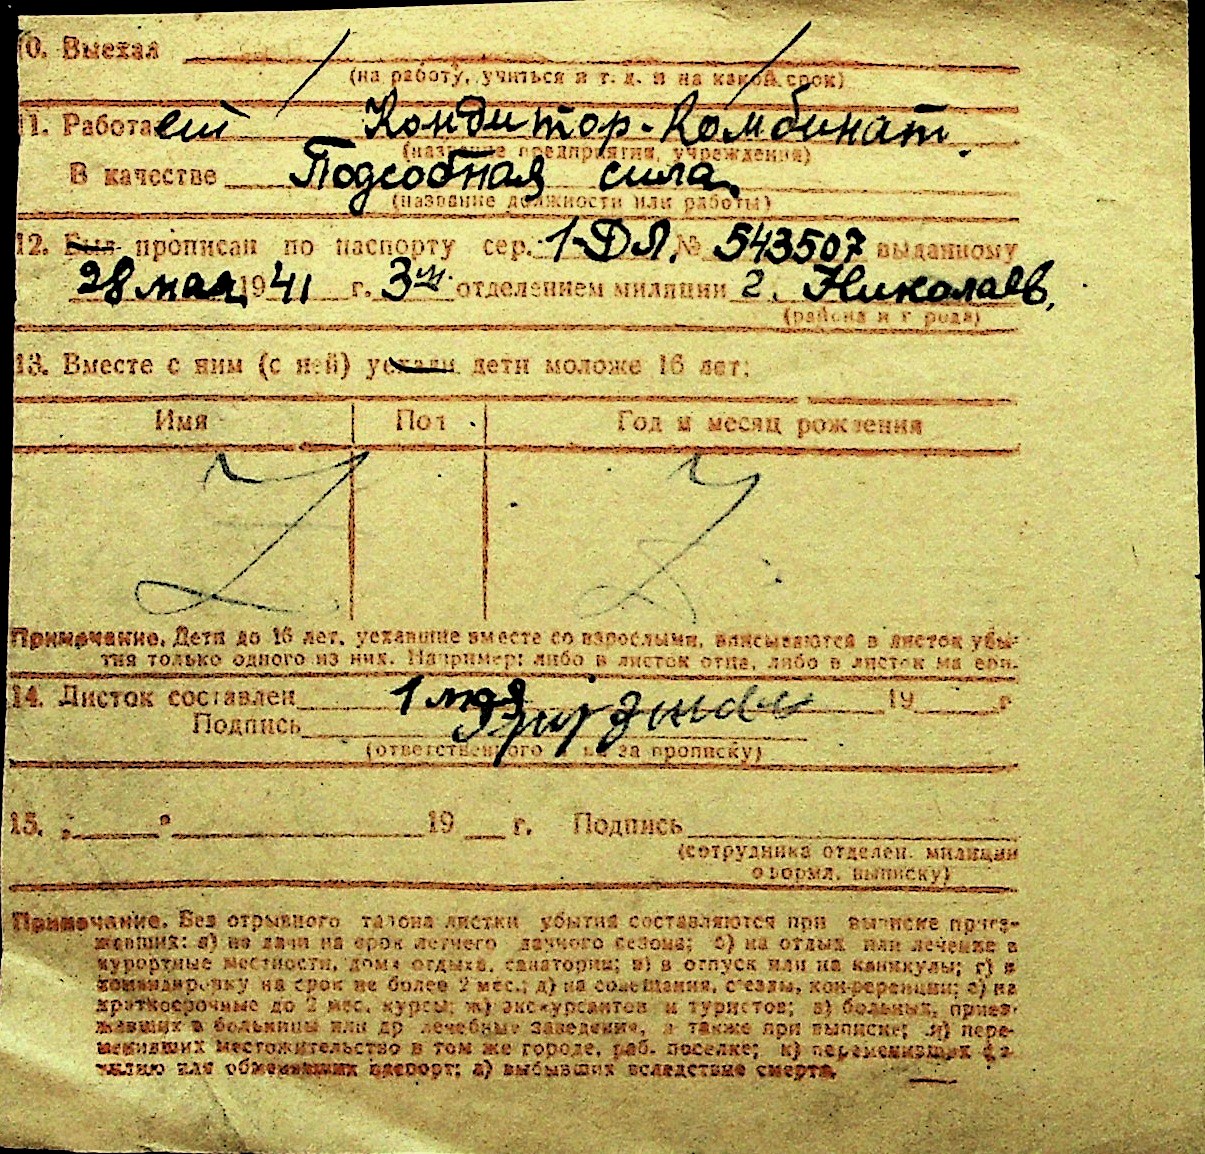 10. Выехал
(на работу, учиться и т. д. и на какой срок)
11. Работает Кондитор. Комбинат.
(название предприятия, учреждения)
В качестве Подсобная сила
(название должности или работы)
12. Был прописан по паспорту сер. 1-ДЛ. № 543507 выданному
28 мая 1941 г. 3им отделением милиции г. Николаев,
(района и города)
13. Вместе с ним (с ней) уехали дети моложе 16 лет:
Имя Пол Год и месяц рождения
Примечание. Дети до 16 лет, уехавшие вместе со взрослыми, вписываются в листок убы-
тия только одного из них. Например: либо в листок отца, либо в листок матери.
14. Листок составлен 1 мая 19 г
Подпись
(ответственного за прописку)
15. „ " 19 г. Подпись
(сотрудника отделен. милиции
оформл. выписку)
Примечание. Без отрывного талона листки убытия составляются при выписке приез-
жавших: а) на дачи на срок летнего дачного сезона; б) на отдых или лечение в
курортные местности, дома отдыха, санатории; в) в отпуск или на каникулы; г) в
командировку на срок не более 2 мес.; д) на совещания, съезды, конференции; е) на
краткосрочные до 2 мес. курсы; ж) экскурсантов и туристов; з) больных, приез-
жавших в больницы или др лечебные заведения, а также при выписке; и) пере-
менивших местожительство в том же городе, раб. поселке; к) переменивших фа-
милию или обменявших паспорт; л) выбывших вследствие смерти.